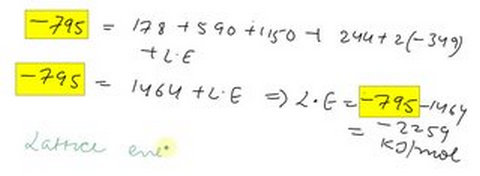 -795 = 178 + 590 + 1150 + 244 + 2(-349)
+ L.E
-795 = 1464 + L.E => L.E = -795 - 1464
= -2259
KJ/mol
Lattice ene